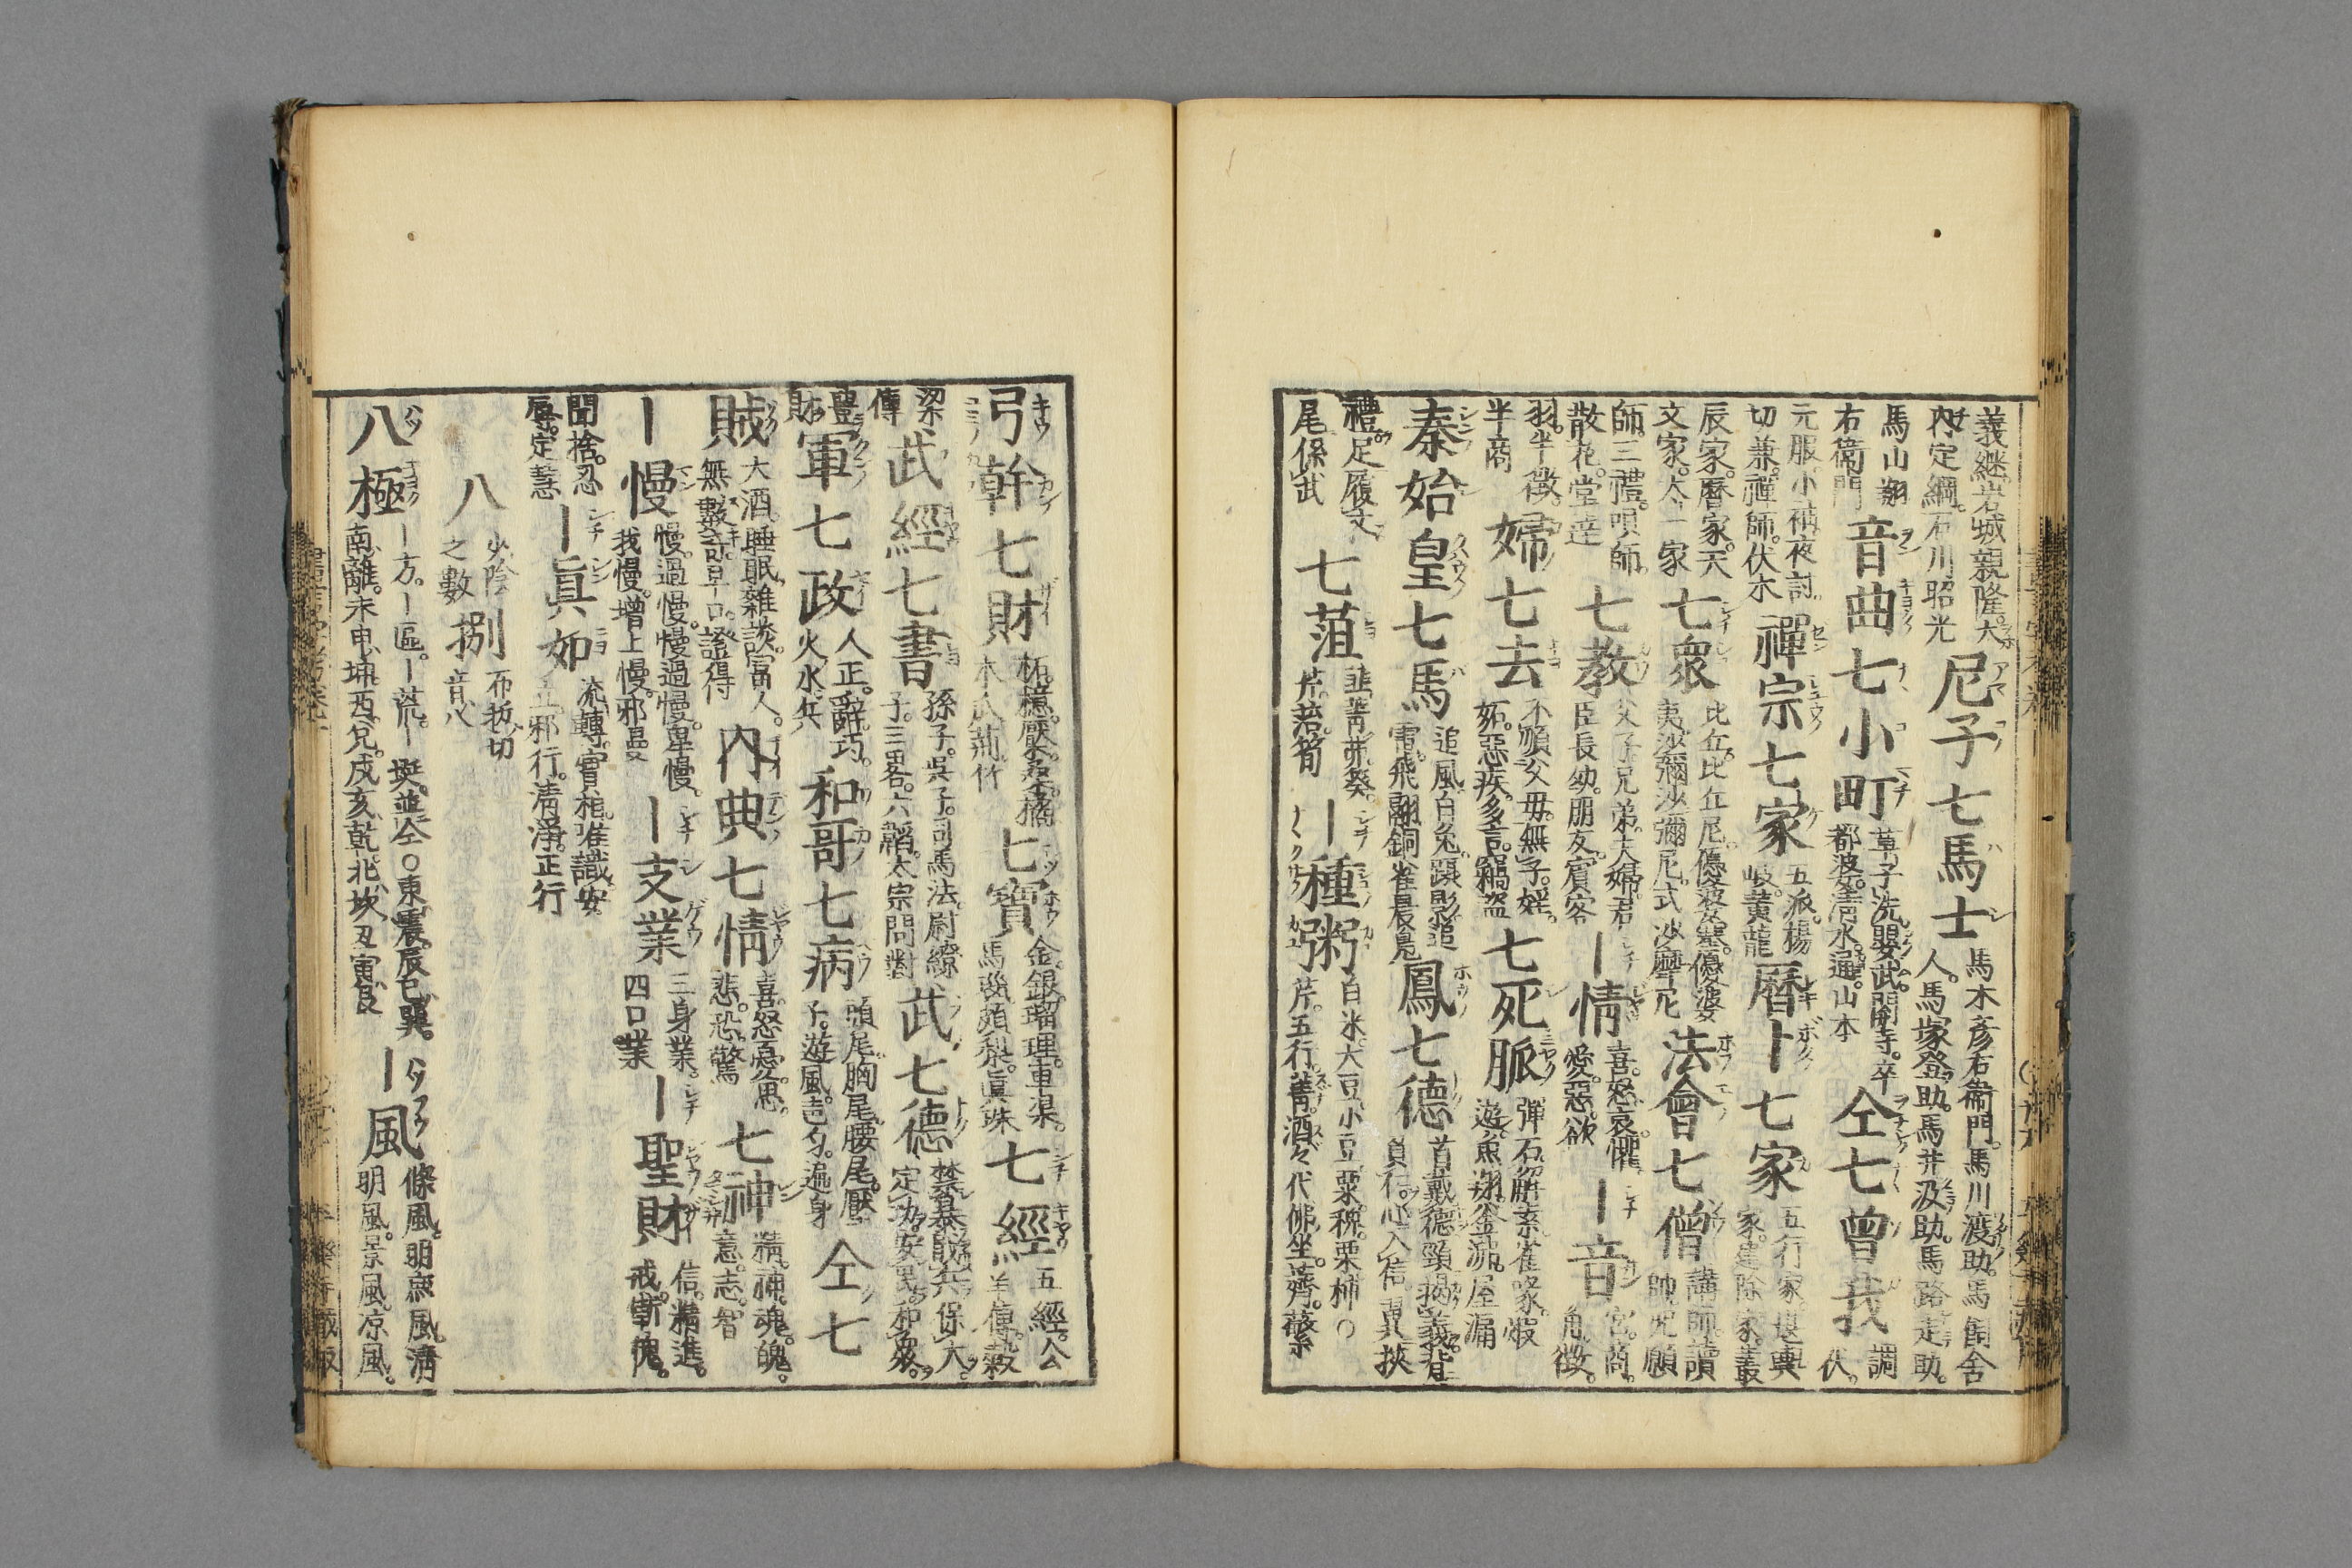 義継岩城親隆大
内定綱石川昭光
尼子七馬士
馬木彦右衞門。馬川渡助。馬飼舍
人。馬塚登助。馬井汲助。馬路走助。
馬山翔
右衞門
音曲七小町
草子洗。鸚武。關寺。卒
都婆。清水。通。山本
仝七曾我
調
伏。
元服。小袖。夜討
切兼。禪師。伏木
禪宗七家
五派。楊
岐。黄龍
曆卜七家
五行家。堪輿
家。建除家。叢
辰家。曆家。天
文家。太一家
七衆
比丘。比丘尼。優婆塞。優婆
夷。沙彌。沙彌尼。式沙摩尼
法會七僧
講師。讀
師。呪願
師。三禮。唄師。
散花。堂達
七教
父子。兄弟。夫婦。君
臣。長幼。朋友。賓客
｜情
喜。怒。哀。懼。
愛。惡。欲
｜音
宮。商。
角。徴。
羽。半徴。
半商
婦七去
不順父母。無子。婬。
妬。惡疾。多言。竊盗
七死脈
彈石。解索。雀啄。蝦
遊。魚翔。釜沸。屋漏
秦始皇七馬
追風。白兔。躡影。追
電。飛翮。銅雀。晨鳧
鳳七德
首戴德。頸揭義。背
負仁。心入信。翼挾
禮。足履文
尾係武
七菹
韭。菁。茆。葵。
芹。菭。筍
｜種粥
白米。大豆。小豆。粟。稗。栗。柿〇
芹。五行。菁。酒々代。佛坐。薺。蘩
弓幹七財
柘。檍。檿桑。橘。
木瓜。荊。竹
七寶
金。銀。瑠璃。車渠。
馬瑙。頗梨。眞珠
七經
五經。公
羊傳。穀
梁
傳
武經七書
孫子。呉子。司馬法。尉繚
子。三畧。六韜。太宗問對
武七德
禁暴。戢兵。保大。
定功。安民。和衆。
豊
財
軍七政
人。正。辭。巧。
火。水。兵
和哥七病
頭尾。胸尾。腰尾。黶
子。遊風。声匀。遍身
仝七
賊
大酒。睡眠。雜談。富人。
無數寄。早口。證得
内典七情
喜。怒。憂。思。
悲。恐。驚
七神
精。神。魂。魄。
意。志。智
｜慢
慢。過慢。慢過慢。卑慢。
我慢。增上慢。邪慢
｜支業
三身業。
四口業
｜聖財
信。精進。
戒。慚愧。
聞。捨。忍
辱。定慧
｜眞如
流轉。實相。唯識。安
立。邪行。清淨。正行
八
少陰
之數
捌
布拔切
音八
八極
｜方。｜區。｜荒。｜埏。並仝〇東震。辰巳巽。
南離。未申坤。西兌。戌亥乾。北坎。丑寅艮
｜風
條風。明庶風。清
明風。景風。凉風。